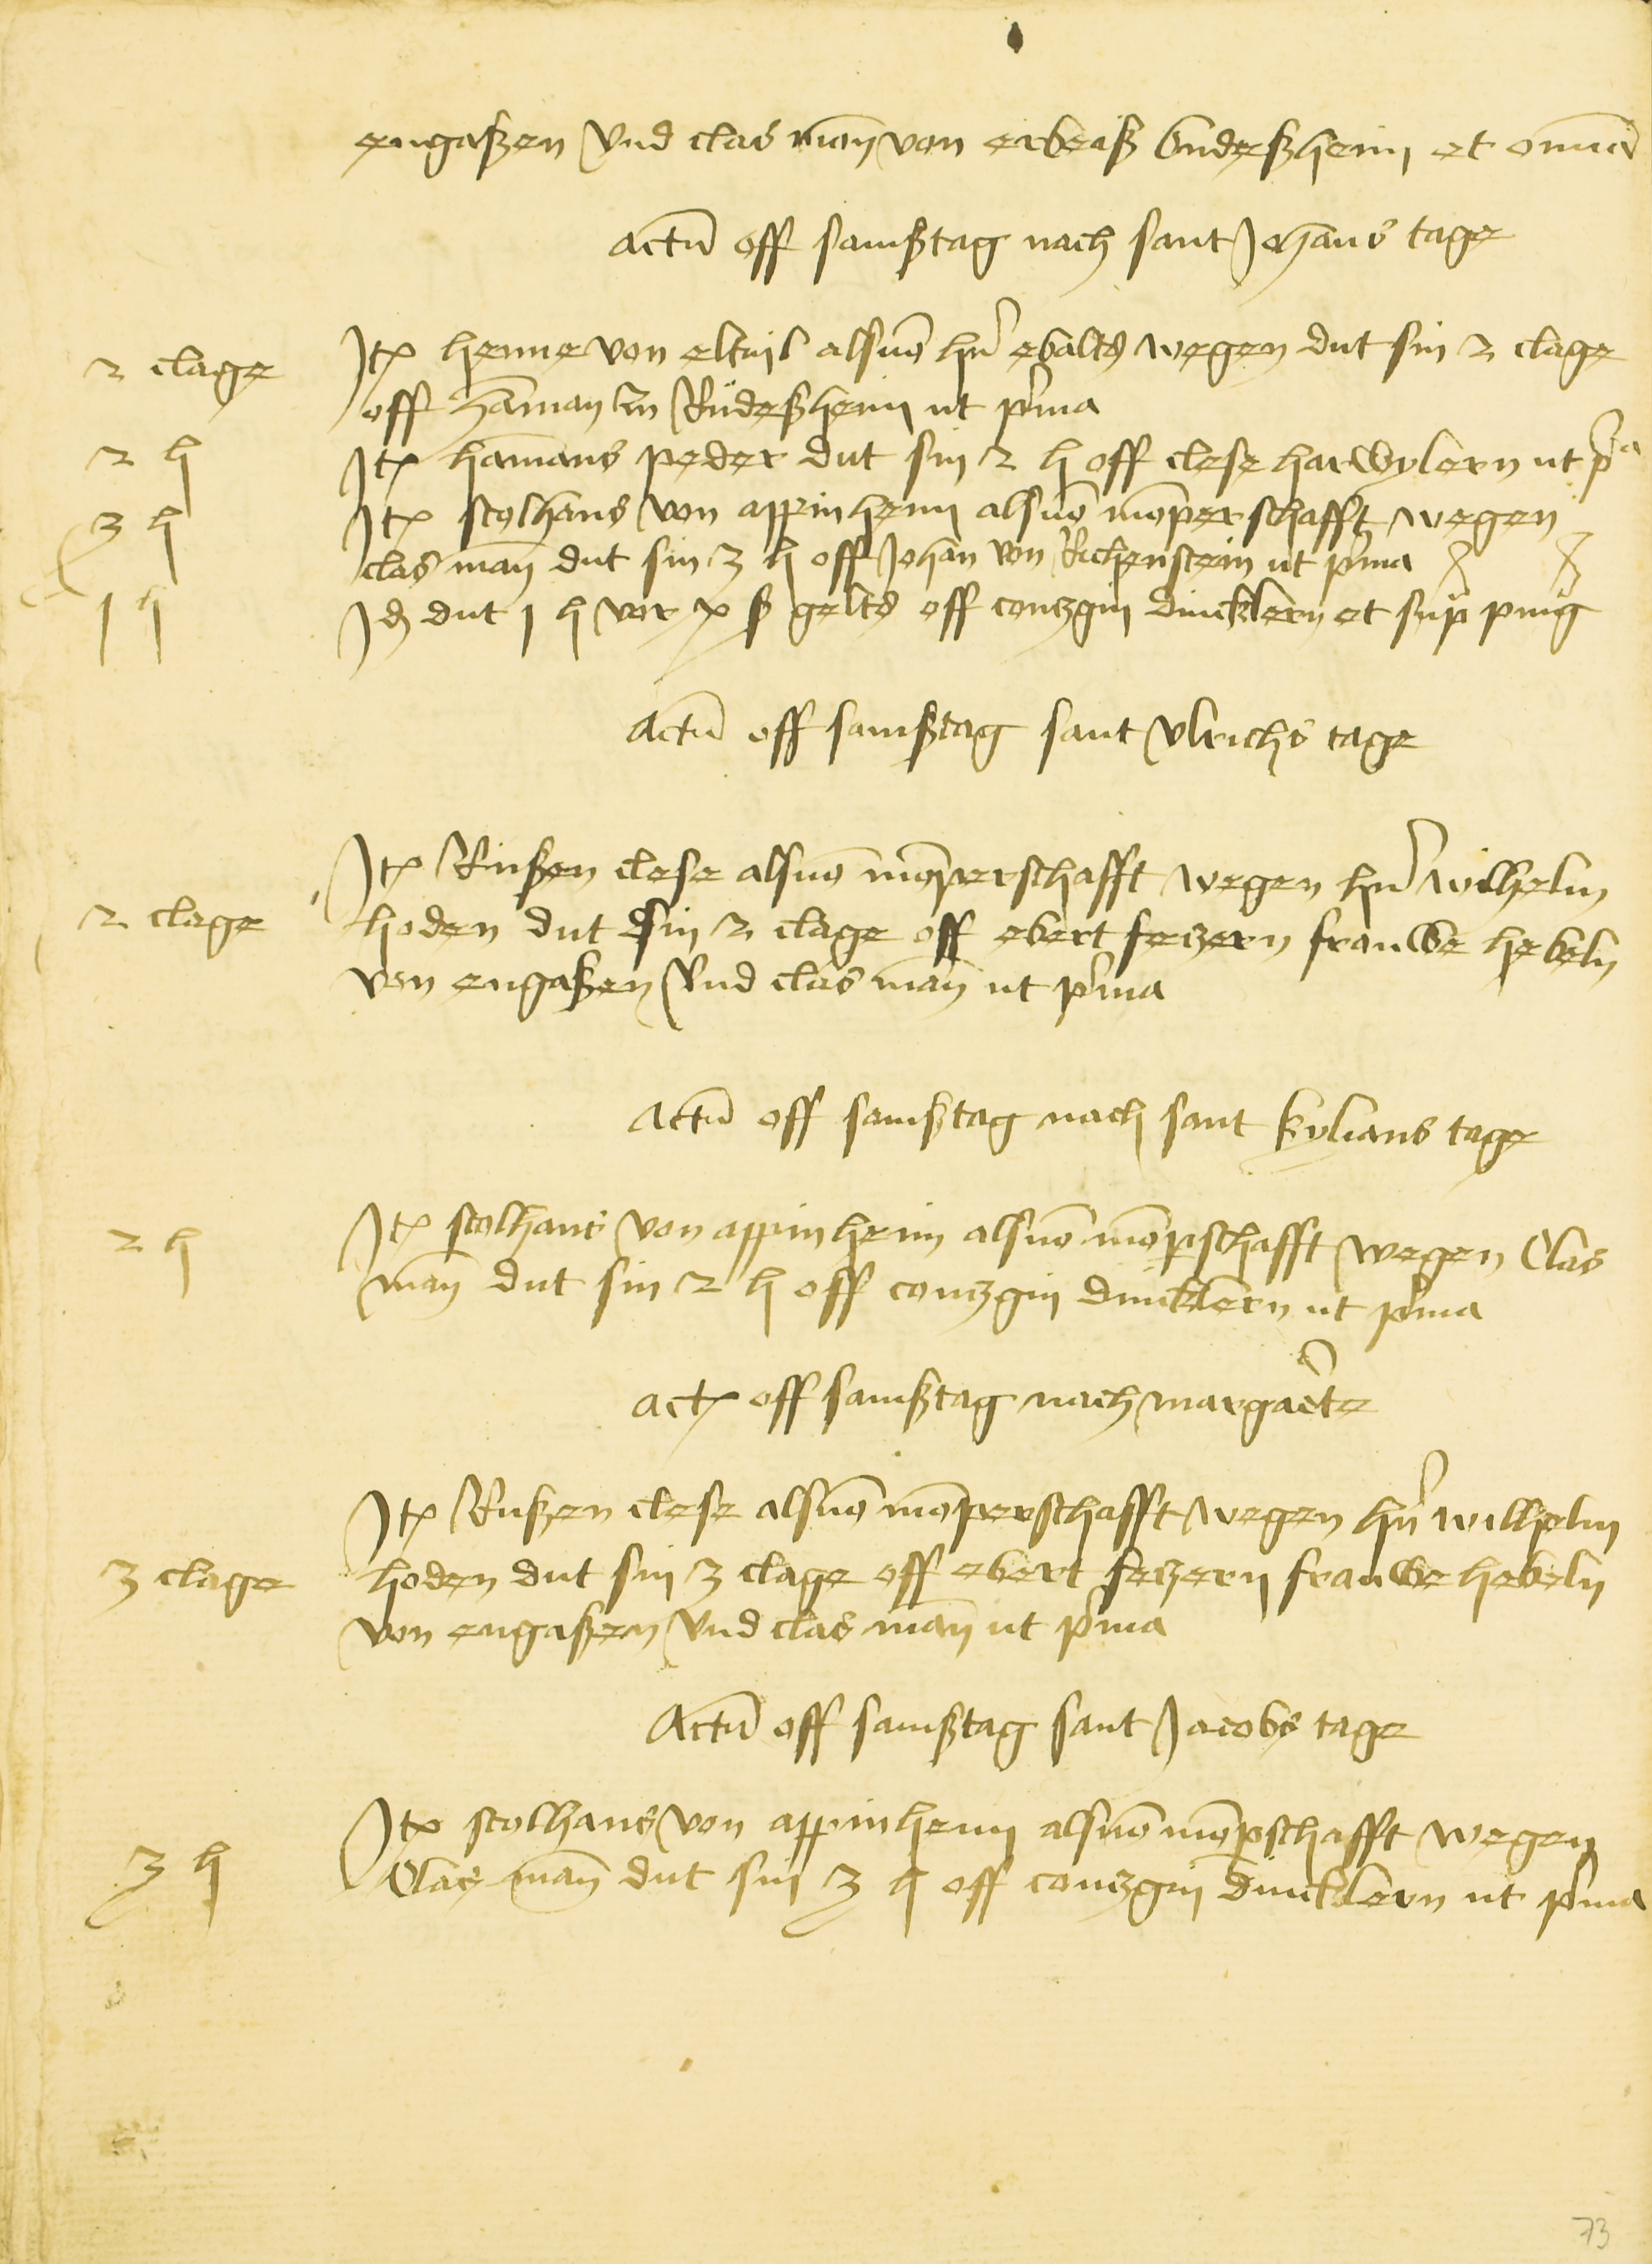 engaßen vnd clas man von erbeiß budeßheim et omnia
Actu᷑ off samßtag nach sant Johans tage
2 clage
Itꝫ henne von eltuil als vo᷑ hern ebalts wegen dut sin 2 clage
off haman in Rudeßheim ut pma
2 h
Itꝫ hamans peder dut sin 2 h off clese harwylern ut pᵃ
3 h
Itꝫ stolhans von appinheim als vo᷑ momperschafft wegen
clas man dut sin 3 h off Johan von Richenstein ut pma
1 h
Id dut 1 h vor x ß gelts off contzgin dinckler et sup pnig
Actu᷑ off samßtag sant vlrichs tage
Itꝫ Rußen clese als vo᷑ momperschafft wegen hern wilhelm
2 clage
hoden dut sin 2 clage off ebert fetzern frauwe hebeln
von engaßen vnd clas man ut pma
Actu᷑ off samßtag nach sant kylians tage
2 h
Itꝫ stolhans von appinheim als vo᷑ mompschafft wegen Clas
man dut sin 2 h off contzgin dincklern ut pma
actꝫ off samßtag nach margarete
Itꝫ Rußen clese als vo᷑ momperschafft wegen hern wilhelm
3 clage
hoden dut sin 3 clage off ebert fetzern frauwe hebeln
von engaßen vnd clas man ut pma
Actu᷑ off samßtag sant Jacobs tage
Itꝫ stolhans von appinheim als vo᷑ mompschafft wegen
3 h
Clas man dut sin 3 h off contzgin dincklern ut pma
73